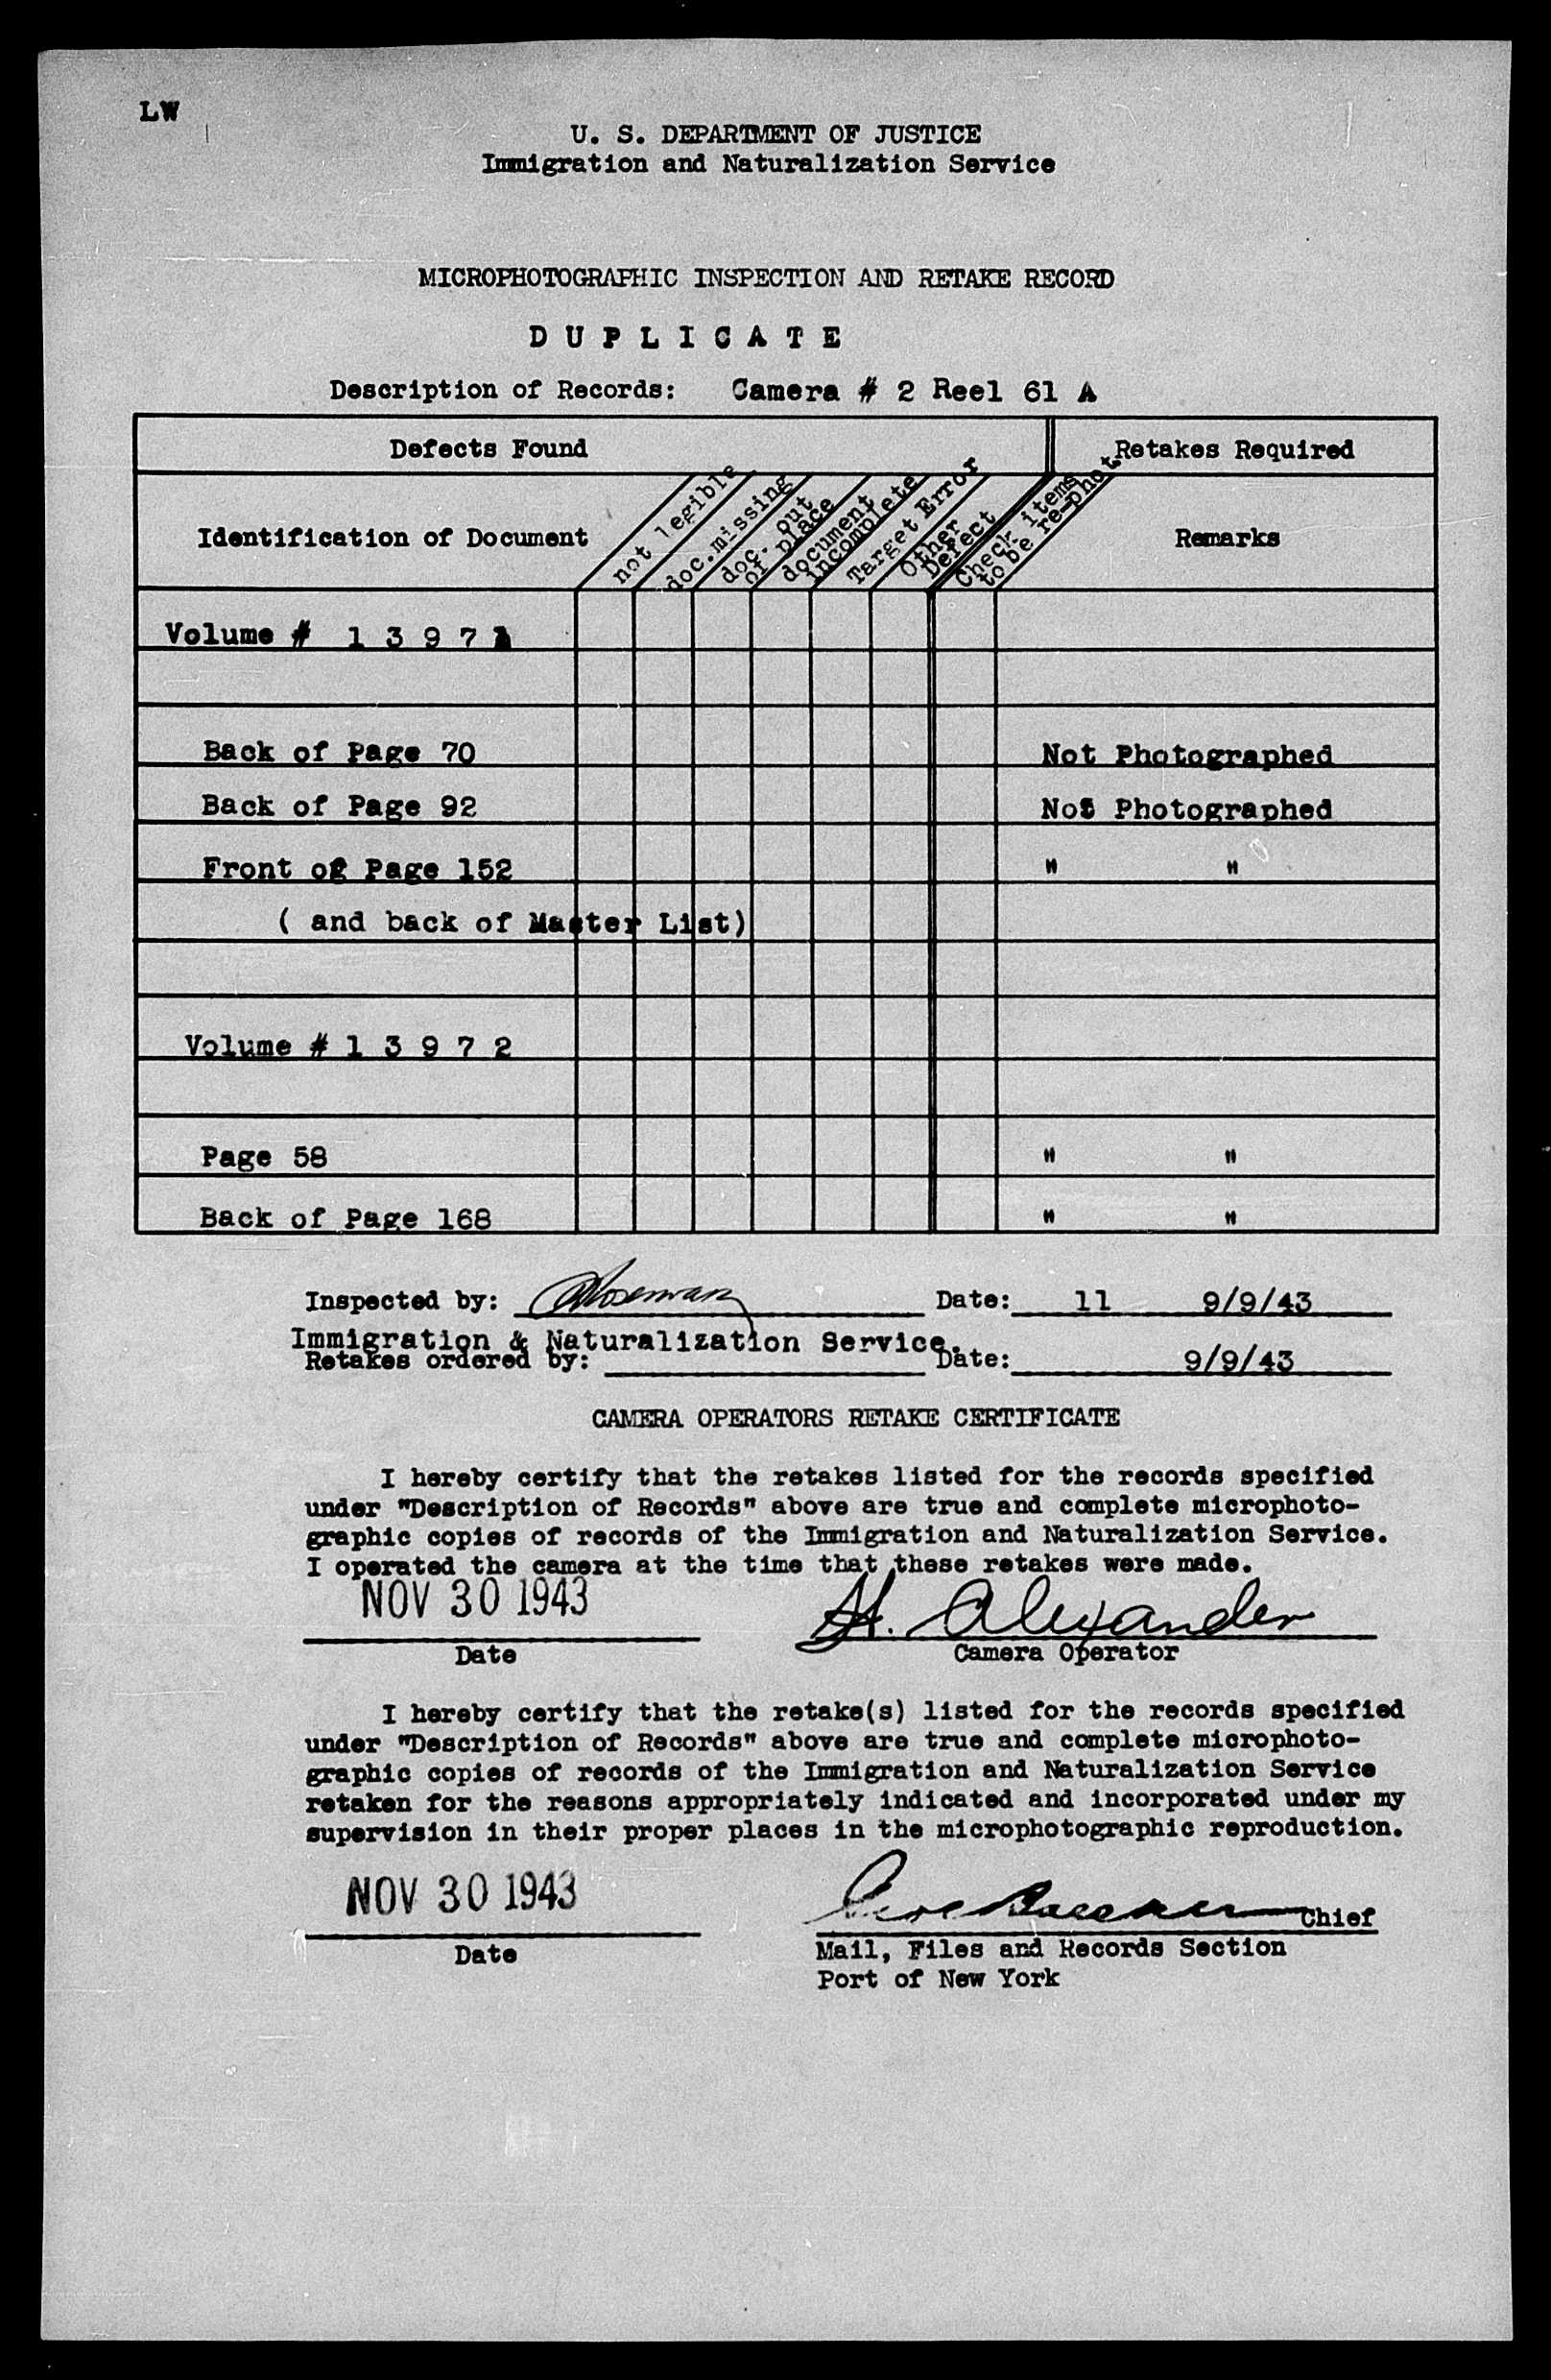 LW
U. S. DEPARTMENT OF JUSTICE
Immigration and Naturalization Service
MICROPHOTOGRAPHIC INSPECTION AND RETAKE RECORD
D U P L I C A T E
Description of Records: Camera # 2 Reel 61 A
Defects Found Retakes Required
Identification of Document
not legible
doc.missing
doc. out
of place
document
incomplete
Target Error
Other
Defect
Check items
to be re-phot.
Remarks
Volume # 1 3 9 7 1
Back of Page 70 Not Photographed
Back of Page 92 Not Photographed
Front of Page 152 " "
( and back of Master List)
Volume # 1 3 9 7 2
Page 58 " "
Back of Page 168 " "
Inspected by: Date: 11 9/9/43
Immigration & Naturalization Service.
Retakes ordered by: Date: 9/9/43
CAMERA OPERATORS RETAKE CERTIFICATE
I hereby certify that the retakes listed for the records specified
under "Description of Records" above are true and complete microphoto-
graphic copies of records of the Immigration and Naturalization Service.
I operated the camera at the time that these retakes were made.
NOV 30 1943 H. Alexander
Date Camera Operator
I hereby certify that the retake(s) listed for the records specified
under "Description of Records" above are true and complete microphoto-
graphic copies of records of the Immigration and Naturalization Service
retaken for the reasons appropriately indicated and incorporated under my
supervision in their proper places in the microphotographic reproduction.
NOV 30 1943 Chief
Date Mail, Files and Records Section
Port of New York